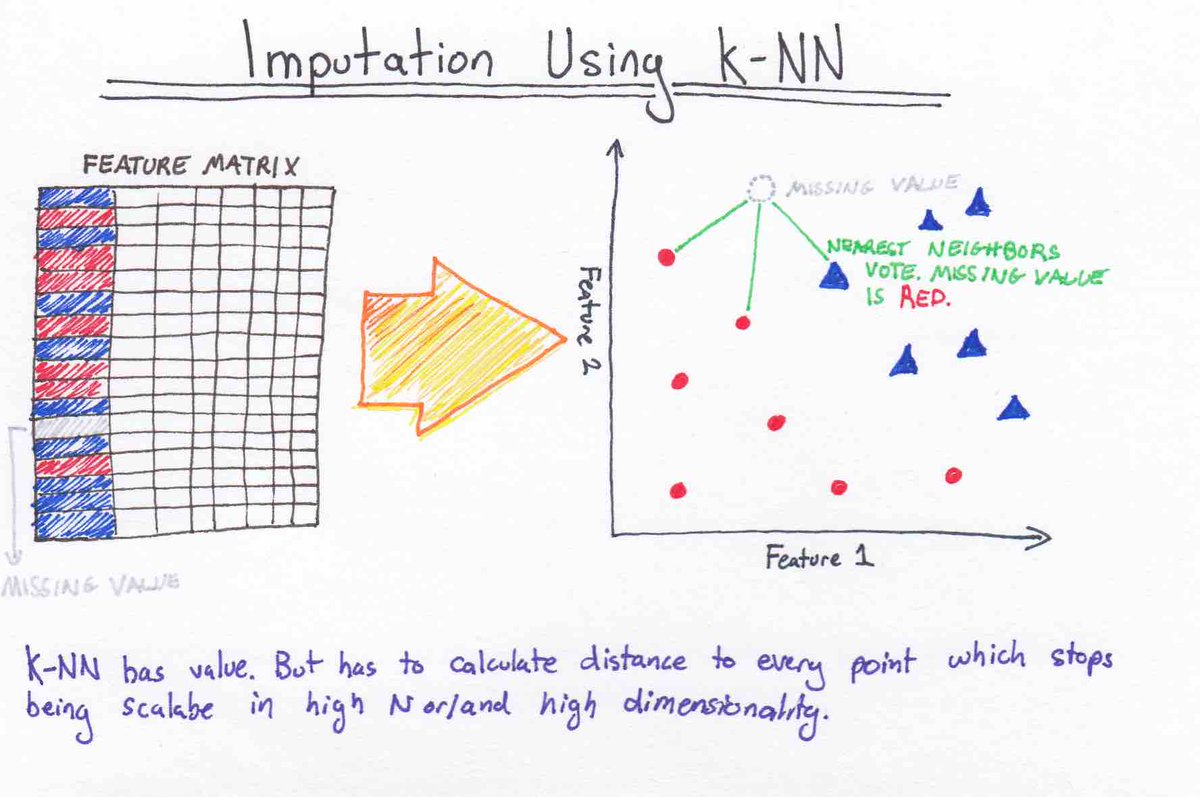 Imputation Using K-NN
FEATURE MATRIX
MISSING VALUE
MISSING VALUE
NEAREST NEIGHBORS
VOTE. MISSING VALUE
IS RED.
Feature 2
Feature 1
K-NN has value. But has to calculate distance to every point which stops
being scalabe in high N or/and high dimensionality.